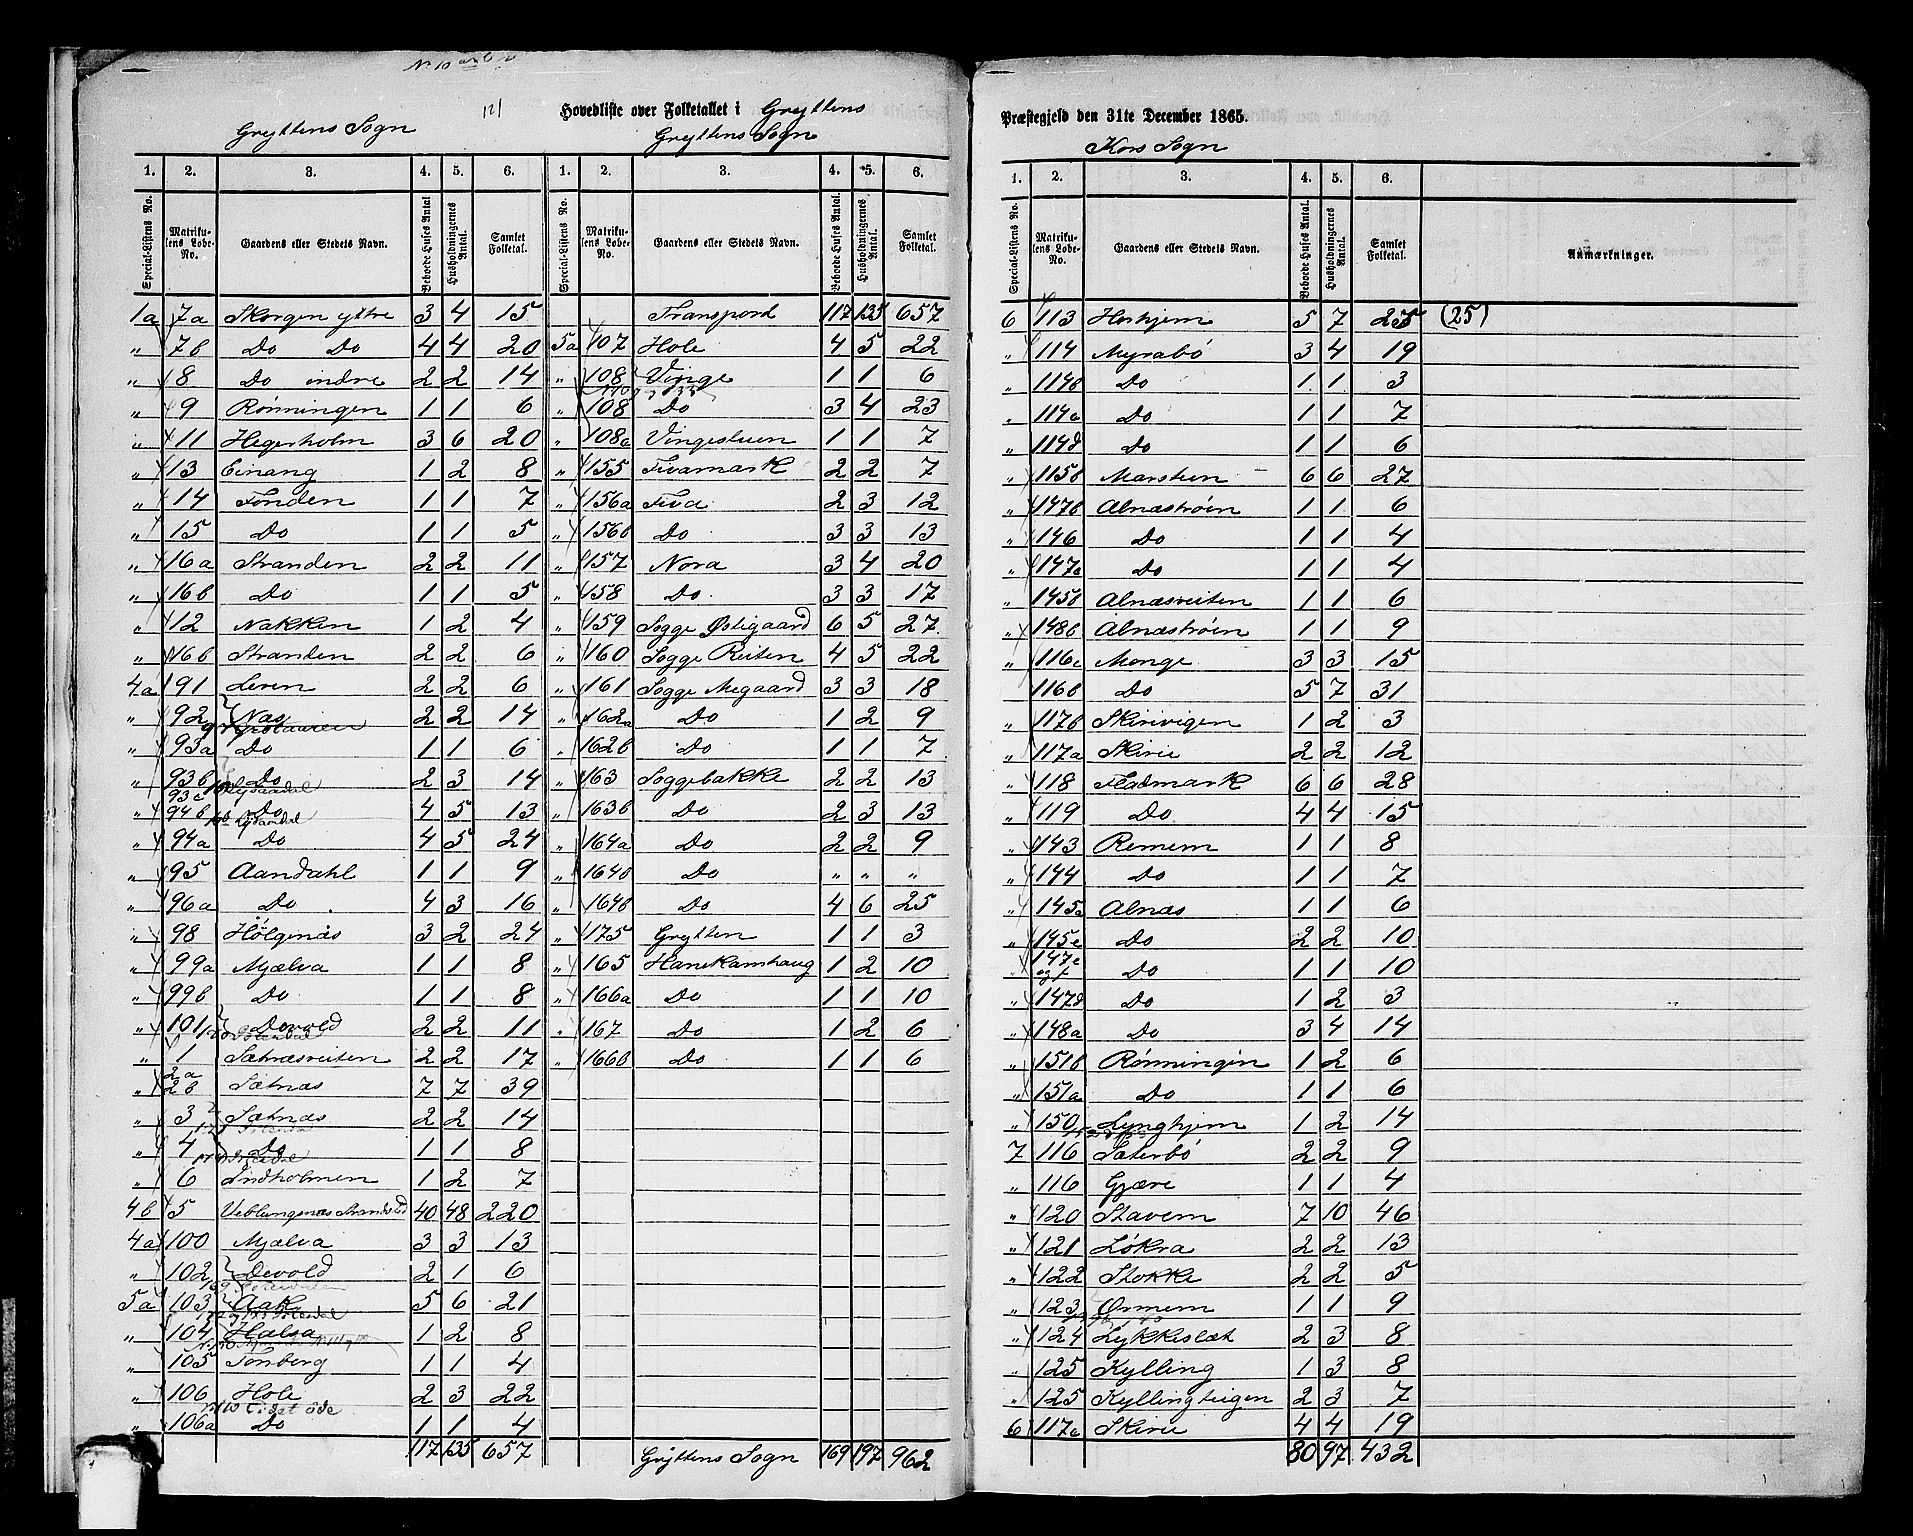 Hovedliste over Folketallet i Gryttens
Præstegjeld den 31te December 1865.
121
Gryttens Sogn
1. 2. 3. 4. 5. 6.
Special-Listens No. Matrikulens Løbe-No. Gaardens eller Stedets Navn. Beboede Huses Antal. Husholdningernes Antal. Samlet Folketal.
1a 7a Skorgen yttre 3 4 15
„ 7b Do Do 4 4 20
„ 8 Do indre 2 2 14
„ 9 Rønningen 1 1 6
„ 11 Hegerholm 3 6 20
„ 13 Einang 1 2 8
„ 14 Tønden 1 1 7
„ 15 Do 1 1 5
„ 16a Stranden 2 2 11
„ 16b Do 1 1 5
„ 12 Nakken 1 2 4
„ 16b Stranden 2 2 6
4a 91 Leren 2 2 6
„ 92 Næs 2 2 14
„ 93a Do 1 1 6
„ 93b Do 2 3 14
93c
„ 94b Do 4 5 13
„ 94a Do 4 5 24
„ 95 Aandahl 1 1 9
„ 96a Do 4 3 16
„ 98 Hølgenæs 3 2 24
„ 99a Mjælva 1 1 8
„ 99b Do 1 1 8
„ 101 Devold 2 2 11
„ 1 Sætnæsreiten 2 2 17
„ 2a 2b Sætnæs 7 7 39
„ 3 Sætnæs 2 2 14
„ 4 Do 1 1 8
„ 6 Indholmen 1 2 7
4b 5 Veblungsnæs Strandsted 40 48 220
4a 100 Mjælva 3 3 13
„ 102 Devold 2 1 6
5a 103 Aak 5 6 21
„ 104 Halsa 1 2 8
„ 105 Tønberg 1 1 4
„ 106 Hole 2 3 22
„ 106a Do 1 1 4
117 135 657
Gryttens Sogn
1. 2. 3. 4. 5. 6.
Special-Listens No. Matrikulens Løbe-No. Gaardens eller Stedets Navn. Beboede Huses Antal. Husholdningernes Antal. Samlet Folketal.
Transpord 117 135 657
5a 107 Hole 4 5 22
„ 108 Vinge 1 1 6
„ 108 Do 3 4 23
„ 108a Vingestuen 1 1 7
„ 155 Fivamark 2 2 7
„ 156a Fiva 2 3 12
„ 156b Do 3 3 13
„ 157 Nora 3 4 20
„ 158 Do 3 3 17
„ 159 Sogge Østigaard 6 5 27
„ 160 Sogge Reiten 4 5 22
„ 161 Sogge Megaard 3 3 18
„ 162a Do 1 2 9
„ 162b Do 1 1 7
„ 163 Soggebakke 2 2 13
„ 163b Do 2 3 13
„ 164a Do 2 2 9
„ 164b Do „ „ „
„ 164b Do 4 6 25
„ 175 Grytten 1 1 3
„ 165 Hanekamhaug 1 2 10
„ 166a Do 1 1 10
„ 167 Do 1 2 6
„ 166b Do 1 1 6
Gryttens Sogn 169 197 962
Kors Sogn
1. 2. 3. 4. 5. 6.
Special-Listens No. Matrikulens Løbe-No. Gaardens eller Stedets Navn. Beboede Huses Antal. Husholdningernes Antal. Samlet Folketal. Anmærkninger.
6 113 Horhjem 5 7 25 (25)
„ 114 Myrabø 3 4 19
„ 114b Do 1 1 3
„ 114c Do 1 1 7
„ 114d Do 1 1 6
„ 115b Marstein 6 6 27
„ 147b Alnæstrøen 1 1 6
„ 146 Do 1 1 4
„ 147a Do 1 1 4
„ 145b Alnæsreiten 1 1 6
„ 148b Alnæstrøen 1 1 9
„ 116c Monge 3 3 15
116b Do 5 7 31
„ 117b Skirivigen 1 2 3
„ 117a Skirie 2 2 12
„ 118 Fladmark 6 6 28
„ 119 Do 4 4 15
„ 143 Remem 1 1 8
„ 144 Do 1 1 7
„ 145a Alnæs 1 1 6
„ 145c Do 2 2 10
„ 147e og f Do 1 1 10
„ 147d Do 1 2 3
„ 148a Do 3 4 14
„ 151b Rønningin 1 2 6
„ 151a Do 1 1 6
„ 150 Lynghjem 1 2 14
7 116 Sæterbø 2 2 9
„ 116 Gjære 1 1 4
„ 120 Stavem 7 10 46
„ 121 Løkra 2 2 13
„ 122 Stokke 2 2 5
„ 123 Ørmem 1 1 9
„ 124 Lykkeslæt 2 3 8
„ 125 Kylling 1 3 8
„ 125 Kyllingteigen 2 3 7
6 117c Skirie 4 4 19
80 97 432